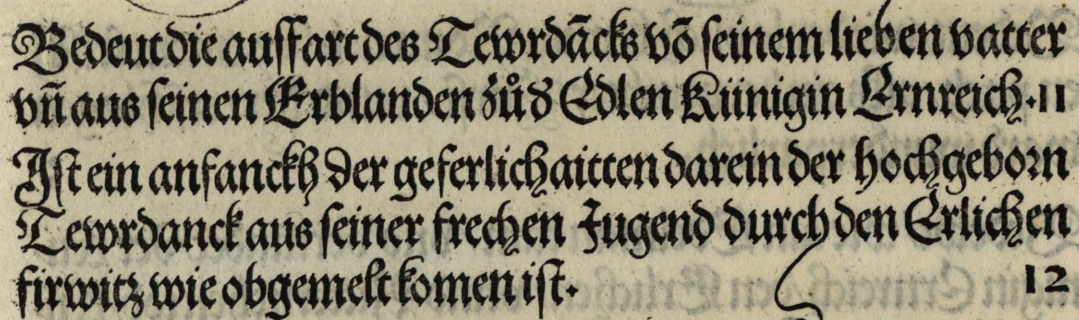 Bedeut die auffart des Tewrdācks vō seinem lieben vatter
vn̄ aus seinen Erblanden zůd Edlen Küinigin Ernreich·11
Ist ein anfanckh der geferlichaitten darein der hochgeborn
Tewrdanck aus seiner frechen Jugend durch den Erlichen
firwitz wie obgemelt komen ist· 12